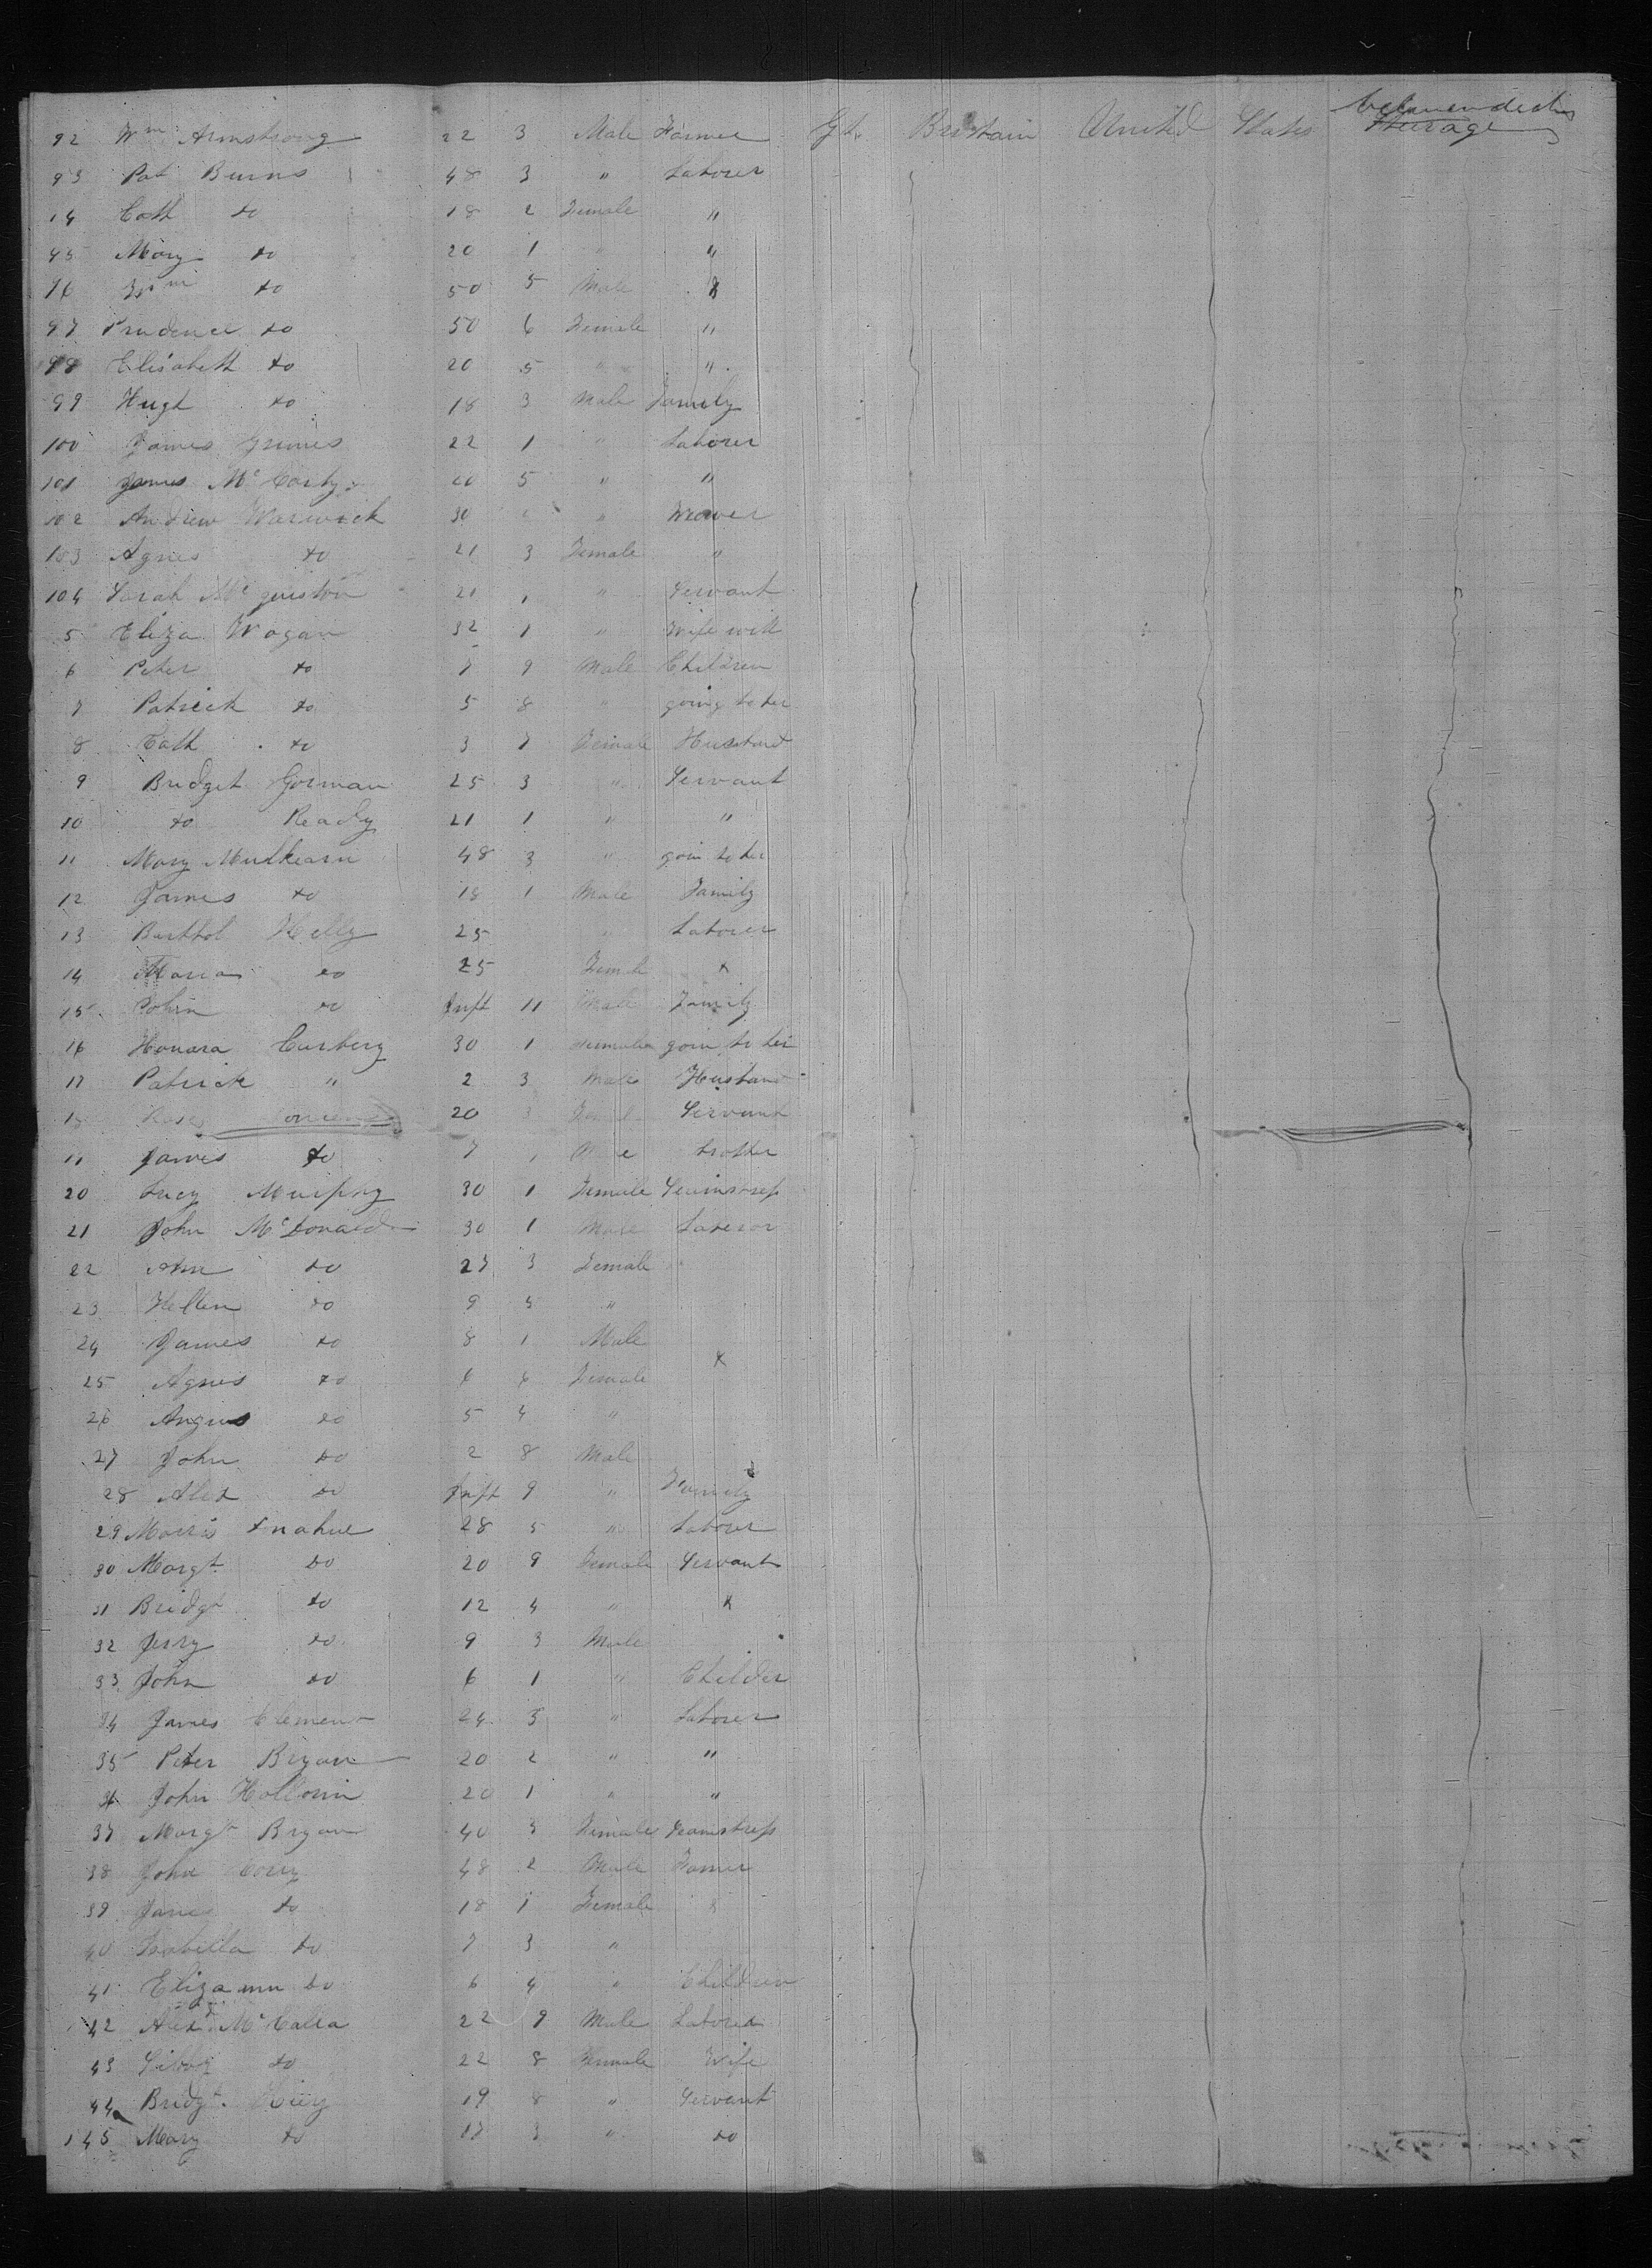 Between decks
92 Wm Armstrong 22 3 Male Farmer Gt. Britain United States Steerage
93 Pat Burns 48 3 " Laborer
94 Cath do 18 2 Female "
95 Mary do 20 1 " "
96 Wm do 50 5 Male
97 Prudence do 50 6 Female "
98 Elisabeth do 20 5 " "
99 Hugh do 18 3 Male Family
100 James Grimes 22 1 " Laborer
101 James McCarty 20 5 " "
102 Andrew Warwick 30 " Weaver
103 Agnes do 21 3 Female "
104 Sarah McQuiston 21 1 " Servant
5 Eliza Wogan 32 1 " Wife with
6 Peter do 7 9 Male Children
7 Patrick do 5 8 " going to her
8 Cath do 3 7 Female Husband
9 Bridget Gorman 25 3 " Servant
10 do Ready 21 1 " "
11 Mary Mulkearn 48 3 " goin to her
12 James do 18 1 Male Family
13 Barthol Kelly 25 " Laborer
14 Maria do 25 Female
15 John do Inft 11 Male Family
16 Honara Curberry 30 1 Female goin to her
17 Patrick " 2 3 Male Husband
18 Rose 20 Servant
19 James do 7 brother
20 Lucy Murphy 30 1 Female Seamstress
21 John McDonald 30 1 Male Laberor
22 Ann do 27 3 Female
23 Hellen do 9 5 "
24 James do 8 1 Male
25 Agnes do 6 6 Female
26 Angus do 5 4 "
27 John do 2 8 Male
28 Alex do Inft 9 " Family
29 Morris 28 5 " Laborer
30 Margt do 20 9 Female Servant
31 Bridgt do 12 4 "
32 Jerry do 9 3 Male
33 John do 6 1 " Childer
34 James Clement 24 3 " Laborer
35 Peter Bryan 20 2 " "
36 John Hollorin 20 1 " "
37 Margt Bryan 40 3 Female Seamstress
38 John Corry 48 2 Male Farmer
39 Jane do 18 1 Female
40 Isabella do 7 3 "
41 Elizaann do 6 4 " Children
42 Alexr McCalla 22 9 Male Laborer
43 do 22 8 Female Wife
44 Bridgt. 19 8 " Servant
145 Mary do 17 3 " do